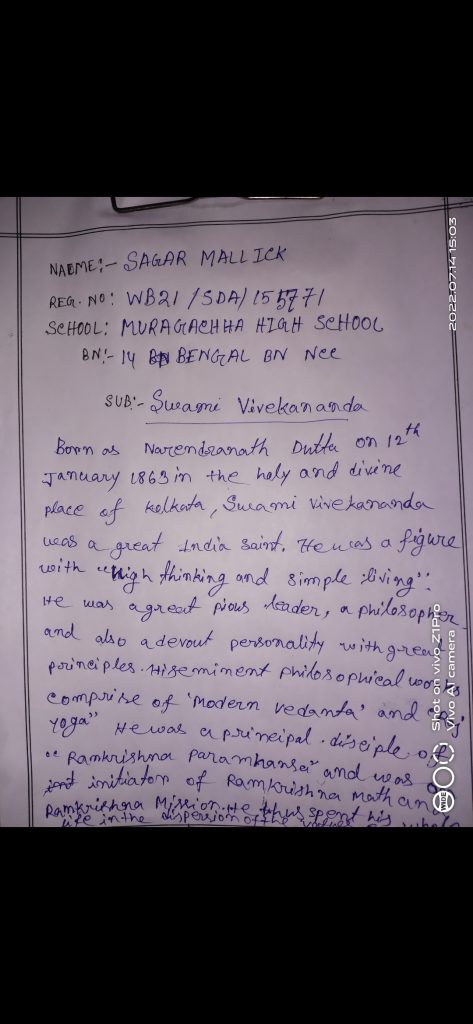 NAEME:- SAGAR MALLICK
REG. NO: WB21 /SDA/155771
SCHOOL: MURAGACHHA HIGH SCHOOL
BN:- 14 BENGAL BN NCC
SUB:- Swami Vivekananda
Born as Narendranath Dutta on 12th
January 1863 in the holy and divine
place of kolkata, Swami vivekananda
was a great India saint. He was a figure
with "high thinking and simple living".
He was a great pious leader, a philosopher
and also a devout personality with great
principles. His eminent philosophical works
comprise of 'Modern vedanta' and
yoga" He was a principal disciple of
"Ramkrishna Paramhansa" and was
initiaton of Ramkrishna Math and
Ramkrishna Mission. He thus spent his
life in the dispersion of the whole
2022.07.14 15:03
Shot on vivo Z1Pro
Vivo AI camera